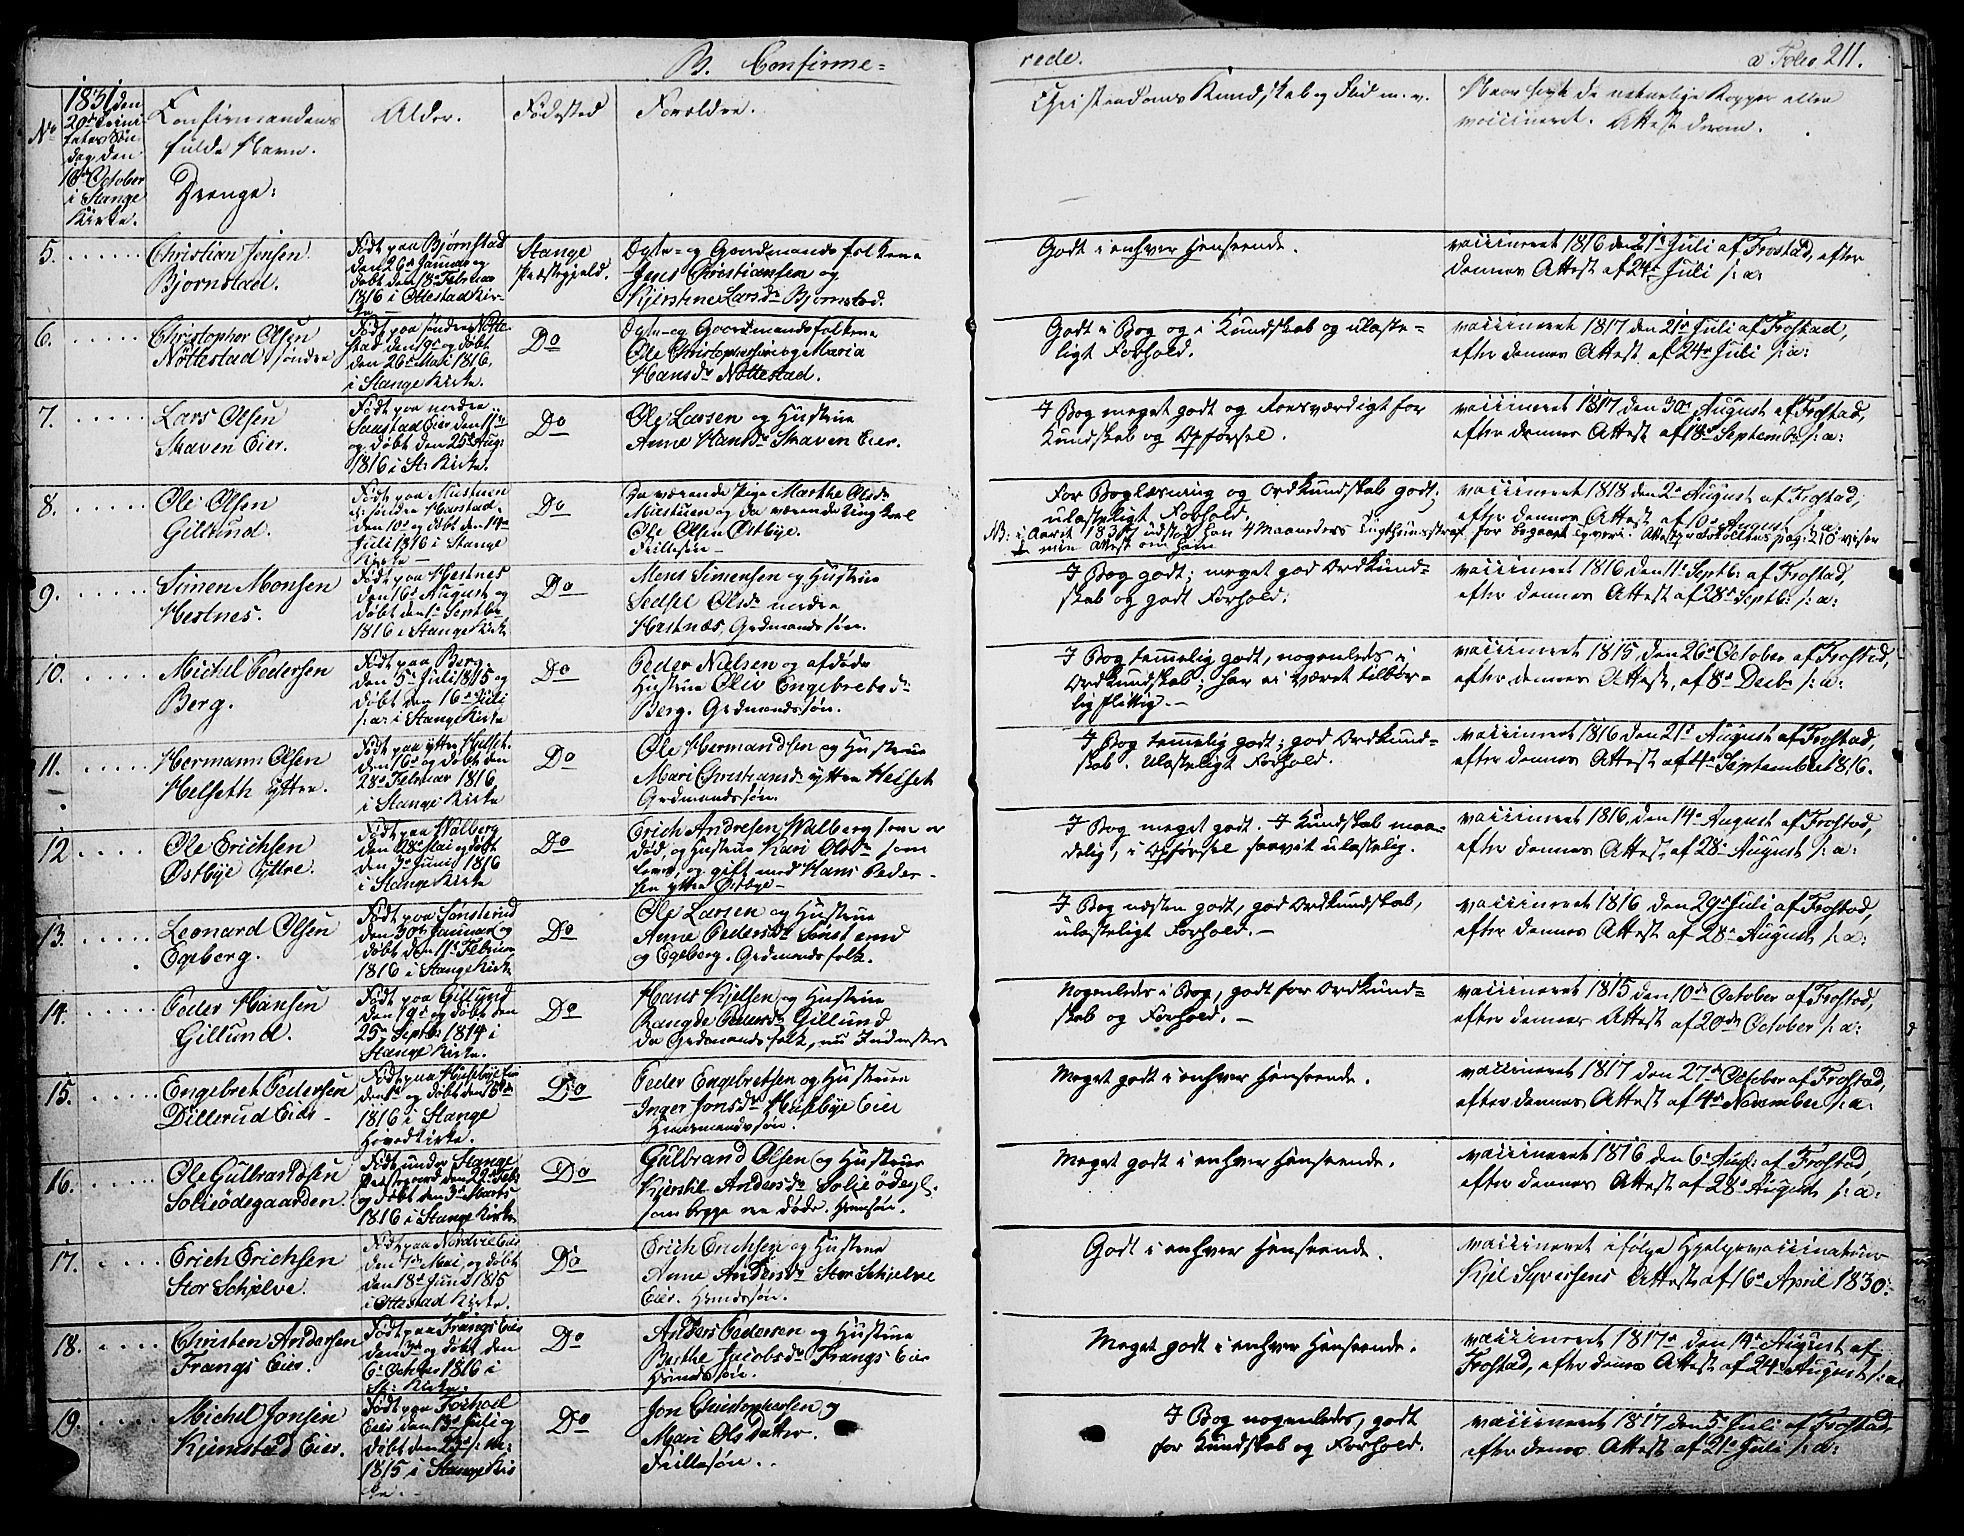 B. Confirme=
rede.
a Folio 211.
No
1831 den
20de Trini-
tatis Søn-
dag den
16de October
i Stange
Kirke.
Confirmandens
fulde Navn.
Drenge:
Alder.
Fødested
Forældre.
Christendoms Kundskab og Flid m. v.
Naar havt de naturlige Kopper eller
vaccineret. Attest derom.
5.
Christian Jensen
Bjørnstad.
Født paa Bjørnstad
den 26de Januar og
døbt den 18de Februar
1816 i Ottestad Kir-
ke
Stange
Præstegjeld.
og Gaardmandsfolkene
Jens Christiansen og
Kjerstine Larsdr. Bjørnstad.
Godt i enhver Henseende.
vaccineret 1816 den 21de Juli af Frostad, efter
dennes Attest af 24de Juli s: a:
6.
Christopher Olsen
Nøttestad søndre
Født paa søndre Nøtte-
stad den 9de og døbt
den 26de Mai 1816,
i Stange Kirke.
Do
og Gaardmandsfolkene
Ole Christophersen og Maria
Hansdr. Nøttestad.
Godt i Bog og i Kundskab og ulaste=
ligt Forhold.
vaccineret 1817 den 21de Juli af Frostad,
efter dennes Attest af 24de Juli s: a:
7.
Lars Olsen
Skaven Eier.
Født paa nordre
Saastad Eier den 11te
og døbt den 25de Aug:
1816 i St: Kirke.
Do
Ole Larsen og Hustrue
Anne Hansdr. Skaven Eier.
I Bog meget godt og roesværdigt for
Kundskab og Opførsel.
vaccineret 1817 den 30de August af Frostad,
efter dennes Attest af 18de Septembr. s: a:
8.
Ole Olsen
Gillund.
Født paa Mustuen
søndre Harstad
den 10de og døbt den 14de
Juli 1816 i Stange
Kirke
Do
Da værende Pige Marthe Olsdr.
Mustuen og da værende Ungkarl
Ole Olsen Østbye.
Frillesøn
For Boglæsning og Ordkundskab godt;
ulasteligt Forhold.
NB: i Aaret 1837 udstod han 4 Maaneders Tugthuusstraf for begaaet Tyverie. Attestprotocollens pag: 210 viser
min Attest om ham
vaccineret 1818 den 2de August af Frostad,
efter dennes Attest af 10de August s: a:
9.
Simen Monsen
Hestnes.
Født paa Hestnes
den 16de August og
døbt den 1ste Septbr.
1816 i Stange Kirke
Do
Mons Simensen og Hustrue
Sedsel Olsdr. nordre
Hestnæs, Grdmandssøn.
I Bog godt; meget god Ordkund=
skab og godt Forhold.
vaccineret 1816 den 11te Septb: af Frostad,
efter dennes Attest af 28de Septb: s: a:
10.
Michel Pedersen
Berg.
Født paa Berg
den 5te Juli 1815 og
døbt den 16de Juli
s: a: i Stange Kirke
Do
Peder Nielsen og afdøde
Hustrue Oliv Engebretsdr.
Berg. Grdmandssøn.
I Bog temmelig godt, nogenledes i
Ordkundskab; har ei været tilbør-
lig flittig.
vaccineret 1815, den 26de October af Frostad,
efter dennes Attest, af 8de Decbr. s: a:
11.
Hermann Olsen
Helseth yttre.
Født paa yttre Helset.
den 16de og døbt den
28de Februar 1816
i Stange Kirke
Do
Ole Hermandsen og Hustrue
Mari Christiansdr. yttre Helset
Grdmandssøn.
I Bog temmelig godt; god Ordkund=
skab. Ulasteligt Forhold.
vaccineret 1816 den 21de August af Frostad,
efter dennes Attest af 4de September 1816.
12
Ole Erichsen
Østbye Yttre.
Født paa Walberg
den 28de Mai og døbt
den 3de Junii 1816
i Stange Kirke
Do
Erich Andresen Walberg som er
død, og Hustrue Kari Olsdr. som
lever, og gift med Hans Peder-
sen yttre Østbye
I Bog meget godt. I Kundskab maa-
delig, i Opførsel saavit ulastelig.
vaccineret 1816, den 14de August af Frostad,
efter dennes Attest, af 28de August s: a:
13.
Leonard Olsen
Egeberg.
Født paa Sønsterud
den 30te Januar og
døbt den 11te Februar
1816 i Stange Kirke
Do
Ole Larsen og Hustrue
Anne Pedersdr. Sønsterud
og Egeberg. Grdmandsfolk.
I Bog næsten godt, god Ordkundskab,
ulasteligt Forhold.
vaccineret 1816 den 29de Juli af Frostad,
efter dennes Attest af 28de August s: a:
14.
Peder Hansen
Gillund.
Født paa Gillund
den 19de og døbt den
25de Septbr 1814 i
Stange Kirke.
Do
Hans Kjelsen og Hustrue
Rangde Pedersdr. Gillund
da Grdmandsfolk, nu Inderster
Nogenledes i Bog, godt for Ordkund=
skab og Forhold.
vaccineret 1815 den 10de October af Frostad,
efter dennes Attest af 20de October s: a:
15.
Engebret Pedersen
Dillerud Eier
Født paa Huseby Eier
den 1ste og døbt den
1816 i Stange
HovedKirke.
Do
Peder Engebretsen og Hustrue
Inger Jonsdr. Husebye Eier
Huusmandssøn.
Meget godt i enhver Henseende.
vaccineret 1817 den 27de October af Frostad,
efter dennes Attest af 4de November s: a:
16.
Ole Gulbrandsen
Solieødegaarden.
Født under Stange
Præstegaard den 29de Feb.
og døbt den 3de Marts
1816 i Stange Kirke
Do
Gulbrand Olsen og Hustrue
Kjersti Andersdr. Solieødegl.
som begge ere døde. Hmssøn.
Meget godt i enhver Henseende.
vaccineret 1816 den 6te Aug: af Frostad,
efter dennes Attest af 28de August s: a:
17.
Erich Erichsen
Stor Schjelve.
Født paa Nordvie Eier
den 7de Mai, og døbt
den 18de Juni 1815
i Ottestad Kirke.
Do
Erich Erichsen og Hustrue
Anne Andersdr. Stor Schjelve
Eier. Hmdssøn.
Godt i enhver Henseende.
vaccineret ifølge Hjelpevaccinateur
Kjel Syversens Attest af 16de April 1830.
18.
Christen Andersen
Frangs Eier.
Født paa Frangs Eier
den 3de og døbt den
6te October 1816 i
St: Kirke.
Do
Anders Pedersen og Hustrue
Berthe Jacobsdr. Frangs Eier
Hmdssøn.
Meget godt i enhver Henseende.
vaccineret 1817 den 14de August af
Frostad, efter dennes Attest af 24de August s: a:
19.
Michel Jonsen
Kjemstad Eier.
Født paa
Eier den 13de Juli og
døbt den 23de s: M:
1815 i Stange Kir
ke.
Do
Jon Christophersen og
Mari Olsdatter.
Frillesøn.
I Bog nogenledes, godt
for Kundskab og Forhold.
vaccineret 1817 den 5te Juli af Frostad,
efter dennes Attest af 21de Juli s: a: